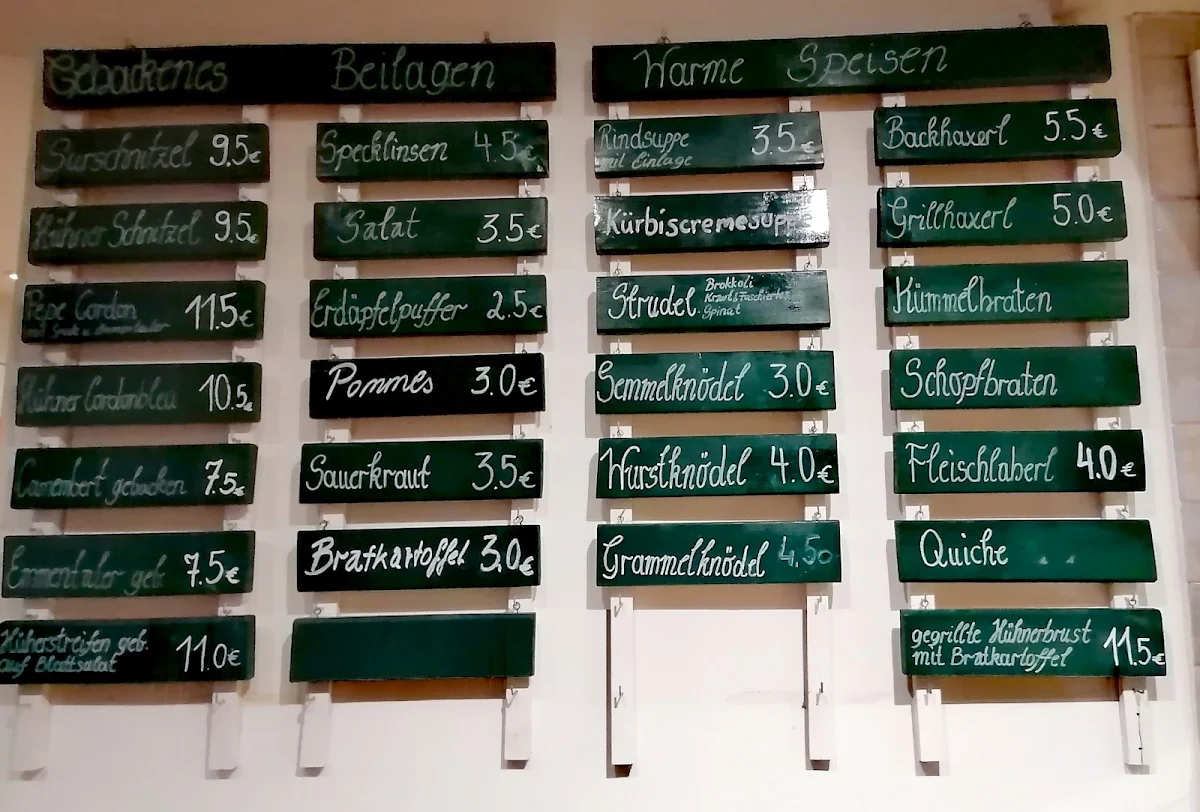 Gebackenes
Surschnitzel 9.5€
Hühner Schnitzel 9.5€
Pepe Cordon 11.5€
mit
Hühner Cordonbleu 10.5€
Camembert gebacken 7.5€
Emmentaler geb. 7.5€
Hühnerstreifen geb.
auf Blattsalat 11.0€
Beilagen
Specklinsen 4.5€
Salat 3.5€
Erdäpfelpuffer 2.5€
Pommes 3.0€
Sauerkraut 3.5€
Bratkartoffel 3.0€
Warme Speisen
Rindsuppe 3.5€
mit Einlage
Kürbiscremesuppe
Strudel Brokkoli
Kraut & Faschiertes
Spinat
Semmelknödel 3.0€
Wurstknödel 4.0€
Grammelknödel 4.50
Backhaxerl 5.5€
Grillhaxerl 5.0€
Kümmelbraten
Schopfbraten
Fleischlaberl 4.0€
Quiche
gegrillte Hühnerbrust
mit Bratkartoffel 11.5€